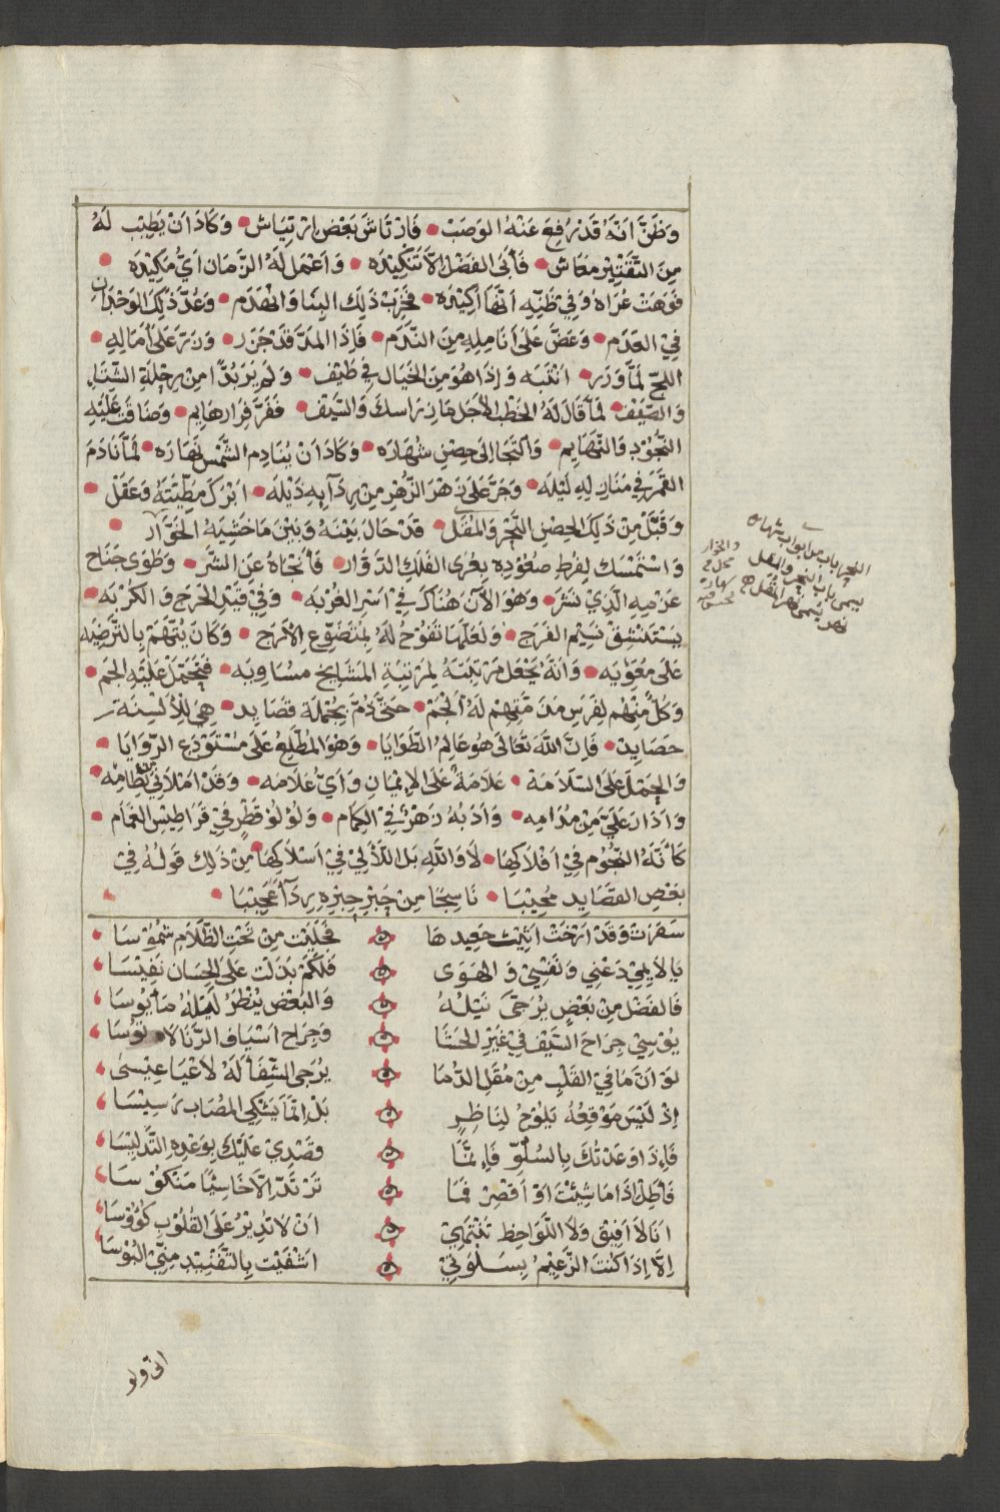 وَظَنَّ اَنَّهُ قَدْ رُفِعَ عَنْهُ الوَصَبْ • فَارْتَاشَ بَعْضَ ارْتِيَاش • وَكَادَ اَنْ يَطِيْبَ لَهُ
مِنَ التَّقْتِيْرِ مَعَاش • فَأَبَى الفَضْلُ اِلاَّ تَنْكِيْدَه • وَاَعْمَلَ لَهُ الزَّمَان اَيَّ مَكِيْدَه •
فَوَهَتْ عُرَاهُ وَفِي ظَنِّهِ اَنَّهَا اَكِيْدَه • فَخَرِبَ ذَلِكَ البِنَا وَانْهَدَم • وَعُدَّ ذَلِكَ الوَجْدَان
فِي العَدَم • وَعَضَّ عَلَى اَنَامِلِهِ مِنَ النَّدَم • فَاِذَا المَدُّ قَدْ جَزَر •
اللحّ لَمَّا وَزَر • انْتَبَه وَاِذَا هُوَ مِنَ الخَيَالِ فِي طَيْف • وَلَمْ يَرَ بُدًّا مِنْ رِحْلَةِ الشِّتَاءِ
وَالصَّيْف • لَمَّا قَالَ لَهُ الخَطْبُ رَاسَكَ وَالسَّيْف • فَفَرَّ فِرَارَ هَايِم • وَضَاقَتْ عَلَيْهِ
النُّجُوْدُ وَالتَّهَايِم • وَالْتَجَا اِلَى حِصْنِ شَهَارَه • وَكَادَ اَنْ يُنَادِمَ الشَّمْسَ نَهَارَه • لَمَّا نَادَمَ
القَمَرَ فِي مَنَازِلِهِ لَيْلَه • وَجَرَّ عَلَى زَهْرِ الزُّهْرِ مِنْ رِدَآيِهِ ذَيْلَه • ابْرَكَ مَطِيَّتَهُ وَعَقَلْ •
وَقَبَّلَ مِنْ ذَلِكَ الحِصْنِ النَّحْرَ وَالمُقَل • قَدْ حَالَ بَيْنَهُ وَبَيْنَ مَا خَشِيَهُ الخَوَّار •
وَاسْتَمْسَكَ لِفَرْطِ صُعُوْدِهِ بِعُرَى الفَلَكِ الدَّوَّار • فَأَنْجَاهُ عَنِ الشَّرّ • وَطَوَى جَنَاحَ
عَزْمِهِ الَّذِي نَشَر • وَهُوَ الآنَ هُنَاكَ فِيْ اَسْرِ الغُرْبَه • وَفِيْ قَيْدِ الحَرَجِ وَالكُرْبَه •
يَسْتَنْشِقُ نَسِيْمَ الفَرَج • وَلَعَلَّهَا تَفُوْحُ لَهُ بِمُتَضَوِّعِ الاَرَج • وَكَانَ يُتَّهَمُ بِالتَّرْضِيَه
عَلَى مُعَوِيَه • وَاَنَّهُ يَجْعَلُ مَرْتَبَتَهُ لِمَرْتَبَةِ المَشَايِخِ مسَاوِيَه • فَيُحْتَمَلْ عَلَيْهِ الجَمّ •
وَكُلٌّ مِنْهُم لِفَرَسِ مَنَ اَلْجَمَ • حَتَّى ذُمَّ بِجُمْلَة قَصَايِد • هِيَ لِلْاَلْسِنَةِ
حَصَايِد • فَاِنَّ اللَّهَ تَعَالَى هُوَ عَالِمُ الطَّوَايَا • وَهُوَ المُطَّلِعُ عَلَى مُسْتَوْدَعِ الزَّوَايَا •
وَالحَمْلُ عَلَى السَّلَامَة • عَلَامَةٌ عَلَى الاِيْمَانِ وَاَيُّ عَلَامَه • وَقَدْ اَمْلَانِيْ مِنْ نِظَامِه •
وَاَدَارَ عَلَيَّ مِنْ مُدَامِه • وَاَدَبُهُ زَهْرٌ فِي الكِمَام • وَلُؤْلُؤُ قَطْرٍ فِيْ قَرَاطِيْسِ الغَمَام •
كَأَنَّهُ النُّجُوْم فِيْ اَفْلَاكِهَا • لَا وَاللَّهِ بَل اللَّآلِيْ فِيْ اَسْلَاكِهَا • مِنْ ذَلِكَ قَولُهُ فِيْ
بَعْضِ القَصَايِد مُجِيْبَا • نَاسِجًا مِنْ حَبْرِ حِبْرِهِ رِدَآءً عَجِيْبَا •
سَفَرَتْ وَقَدْ اَرْخَتْ اَثِيْثَ جَعِيدهَا ۞ فَجَلِيَتْ مِنْ تَحْتِ الظَّلَامِ شُمُوْسَا
يَا لَايِمِيْ دَعْنِي وَنَفْسِيْ وَالهَوَى ۞ فَلَكَمْ بَذَلْتُ عَلَى الحِسَان نَفِيْسَا
فَالفَضْلُ مِنْ بَعْضٍ يُرَجَّى نَيْلُهُ ۞ وَالبَعْض يُنْظَرُ نَيْلُهُ مَأْيُوْسَا
يُوْسِيْ جِرَاحَ السَّيْفِ فِيْ غَيْرِ الحَشَا ۞ وَجِرَاح اَسْيَافِ الرَّنَا لَا تُوْسَا
لَوَ انَّ مَا فِي القَلْبِ مِنْ مُقَلِ الدُّمَا ۞ يُرْجَى الشِّفَا لَهُ لَاَعْيَا عِيْسَى
اِذْ لَيْسَ مَوْقِعُهُ يَلُوْحُ لِنَاظِرٍ ۞ بَلْ اِنَّمَا يَشْكِي المُصَابُ رَسِيْسَا
فَاِذَا وَعَدْتُكَ بِالسُّلُوِّ فَاِنَّمَا ۞ قَصْدِيْ عَلَيْكَ بِوَعْدِهِ التَّدْلِيْسَا
فَأَطِلْ اِذَا مَا شِيْتَ اَوْ اَقْصِرْ فَمَا ۞ تَرْتَدُّ اِلَّا خَاسِيًا مَنكُوْسَا
اَنَا لَا اُفِيْقُ وَلَا اللَّوَاحِظ تَنْتَهِيْ ۞ اَنْ لَا تُدِيْرُ عَلَى القُلُوْبِ كُؤُوْسَا
اِلَّا اِذَا كُنْتَ الزَّعِيْمُ بِسَلْوَتِيْ ۞ اشْفَيْتَ بِالتَّفْنِيْدِ مِنِّي البُوْسَا
النحر باب من ابواب شهاره